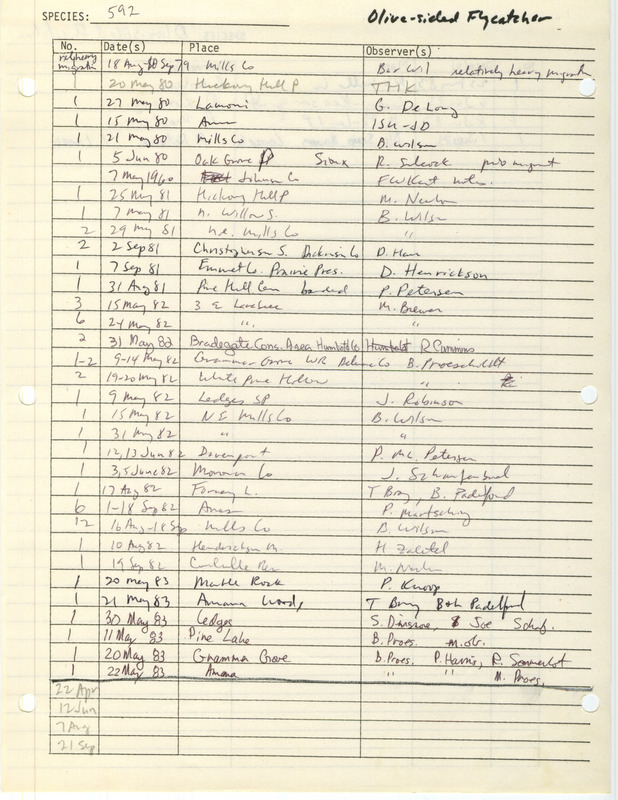 SPECIES: 592 Olive-sided Flycatcher
No. Date(s) Place Observer(s)
rel. heavy migration 18 Aug-18 Sep 79 Mills Co Bar Wil relatively heavy migration
20 May 80 Hickory Hill P THK
1 27 May 80 Lamoni G. DeLong
1 15 May 80 Ames ISU-JD
1 21 May 80 Mills Co B. Wilson
1 5 Jun 80 Oak Grove P Sioux R. Silcock
7 May 1960 Johnson Co FWKent
1 25 May 81 Hickory Hill P M. Newlon
1 7 May 81 n. Willow S. B. Wilson
2 29 May 81 n.e. Mills Co "
2 2 Sep 81 Dickinson Co D. Harr
1 7 Sep 81 Emmet Co. Prairie Pres. D. Henrickson
1 31 Aug 81 Pine Hill Cem banded P. Petersen
3 15 May 82 3 E M. Brewer
6 24 May 82 "
2 31 May 82 Bradegate Cons. Area Humboldt Co Humboldt R Cummins
1-2 9-14 May 82 Grammer Grove WR B. Proescholdt
2 19-20 May 82 White Pine Hollow "
1 9 May 82 Ledges SP J. Robinson
1 15 May 82 NE Mills Co B. Wilson
1 31 May 82 " "
1 12,13 Jun 82 Davenport P. Mc. Petersen
1 3,5 June 82 Monona Co J. Schaufenbuel
1 17 Aug 82 Forney L. T Bray, B. Padelford
6 1-18 Sep 82 Ames P. Martsching
12 16 Aug-18 Sep Mills Co B. Wilson
1 10 Aug 82 Henderson M. H. Zaletel
1 19 Sep 82 Coralville Res M. Newlon
1 20 May 83 Marble Rock P. Knoop
1 21 May 83 Amana Woods T Bray B&L Padelford
1 30 May 83 Ledges S. Dinsmore, & Joe Schaf.
1 11 May 83 Pine Lake B. Proes. m.ob.
1 20 May 83 Gramma Grove B. Proes. P. Harris, R. Sommerlot
1 22 May 83 Amana " " M. Proes,
22 Apr
12 Jun
7 Aug
21 Sep